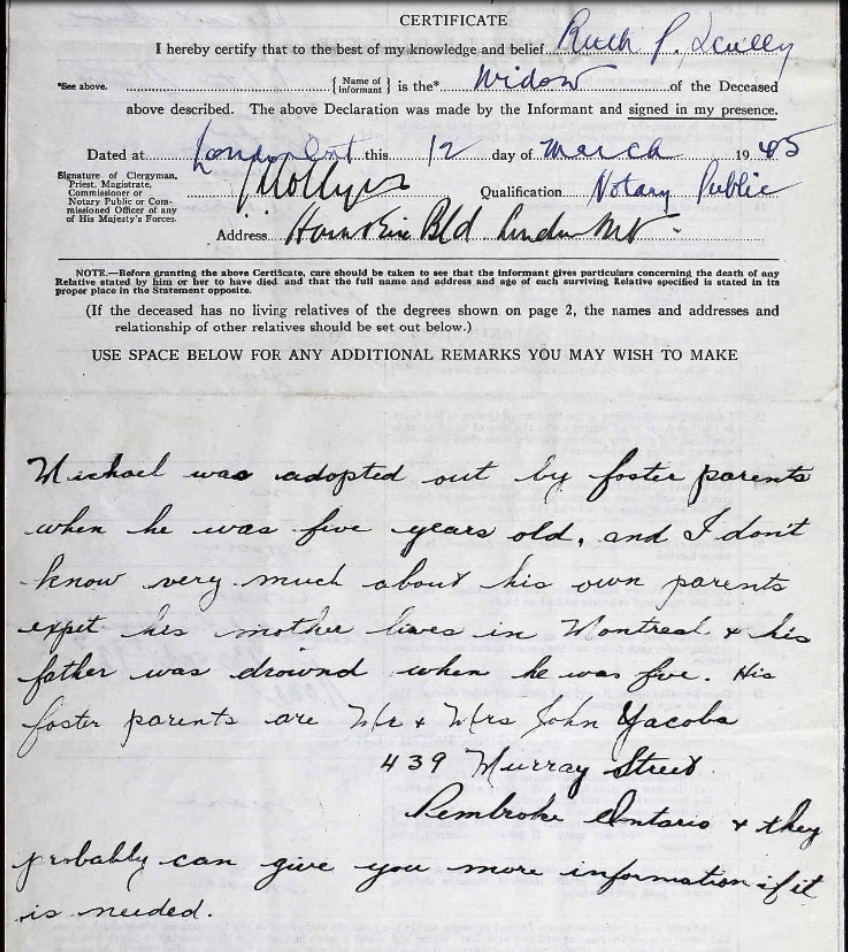 CERTIFICATE
I hereby certify that to the best of my knowledge and belief Ruth P. Scully
*See above. { Name of Informant } is the* Widow of the Deceased
above described. The above Declaration was made by the Informant and signed in my presence.
Dated at London Ont this 12 day of March 1945
Signature of Clergyman, Priest, Magistrate, Commissioner or Notary Public or Commissioned Officer of any of His Majesty's Forces.
Qualification Notary Public
Address Bld. London Ont
NOTE.—Before granting the above Certificate, care should be taken to see that the informant gives particulars concerning the death of any
Relative stated by him or her to have died and that the full name and address and age of each surviving Relative specified is stated in its
proper place in the Statement opposite.
(If the deceased has no living relatives of the degrees shown on page 2, the names and addresses and
relationship of other relatives should be set out below.)
USE SPACE BELOW FOR ANY ADDITIONAL REMARKS YOU MAY WISH TO MAKE
Michael was adopted out by foster parents
when he was five years old, and I don't
know very much about his own parents
expet his mother lives in Montreal & his
father was drownd when he was five. His
foster parents are Mr & Mrs John Yacobs
439 Murray Street
Pembroke Ontario & they
probably can give you more information if it
is needed.